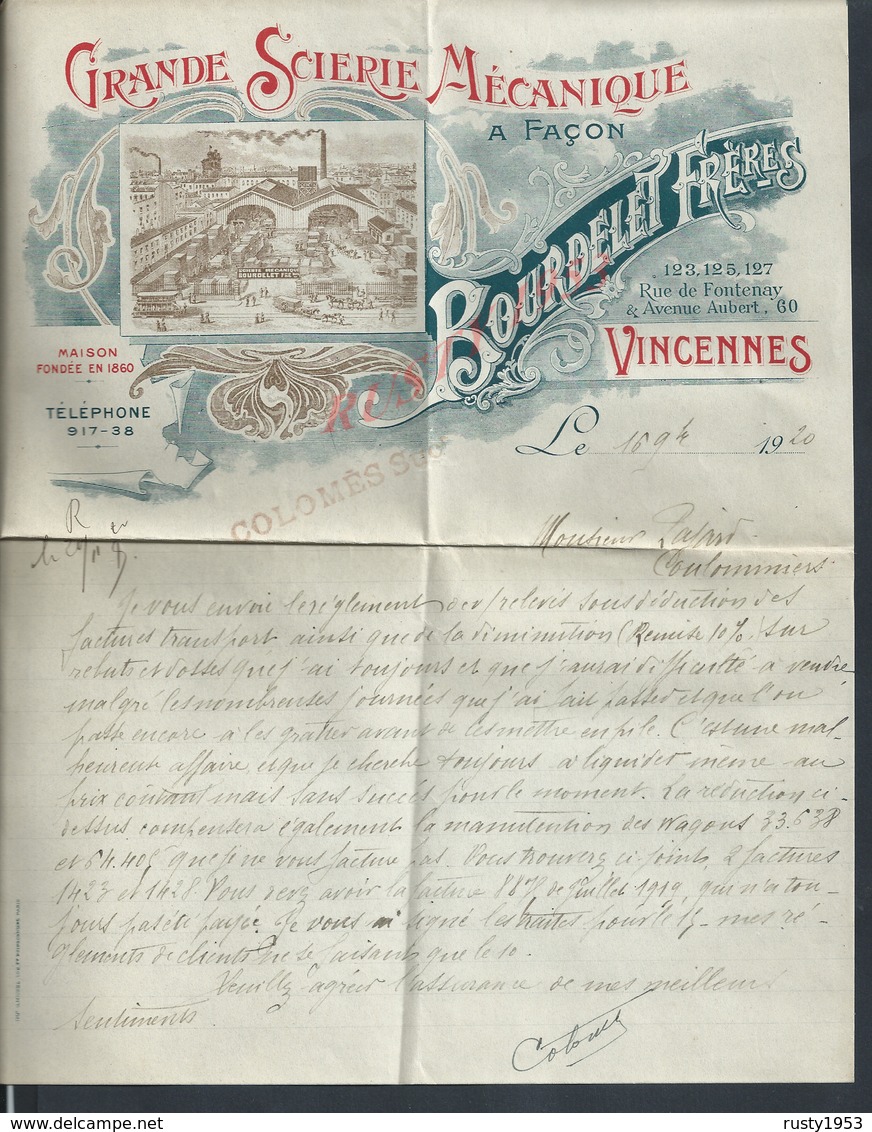 GRANDE SCIERIE MÉCANIQUE
A FAÇON
BOURDELET FRÈRES
SCIERIE MÉCANIQUE
BOURDELET FRES
123, 125, 127
Rue de Fontenay
& Avenue Aubert, 60
VINCENNES
MAISON
FONDÉE EN 1860
TÉLÉPHONE
917-38
COLOMÈS Sucr
Le 16 9bre 1920
R
Monsieur
Coulommiers
Je vous envoie le règlement de v/ relevés sous déduction des
factures transport ainsi que de la diminution (Remise 10%) sur
rebuts et dosses que j'ai toujours et que j'aurai difficulté à vendre
malgré les nombreuses journées que j'ai fait passer et que l'on
passe encore à les gratter avant de les mettre en pile. C'est une mal-
heureuse affaire, et que je cherche toujours à liquider même au
prix coûtant mais sans succès pour le moment. La réduction ci-
dessus compensera également la manutention des wagons 33.638
et 64.405 que je ne vous facture pas. Vous trouverez ci-joints, 2 factures
1423 et 1428. Vous devez avoir la facture de Juillet 1919, qui n'a tou-
jours pas été payée. Je vous ai signé les traites pour le 15 mes ré-
glements de clients ne se faisant que le 10.
Veuillez agréer l'assurance de mes meilleurs
sentiments.
Colomès
rusty1953